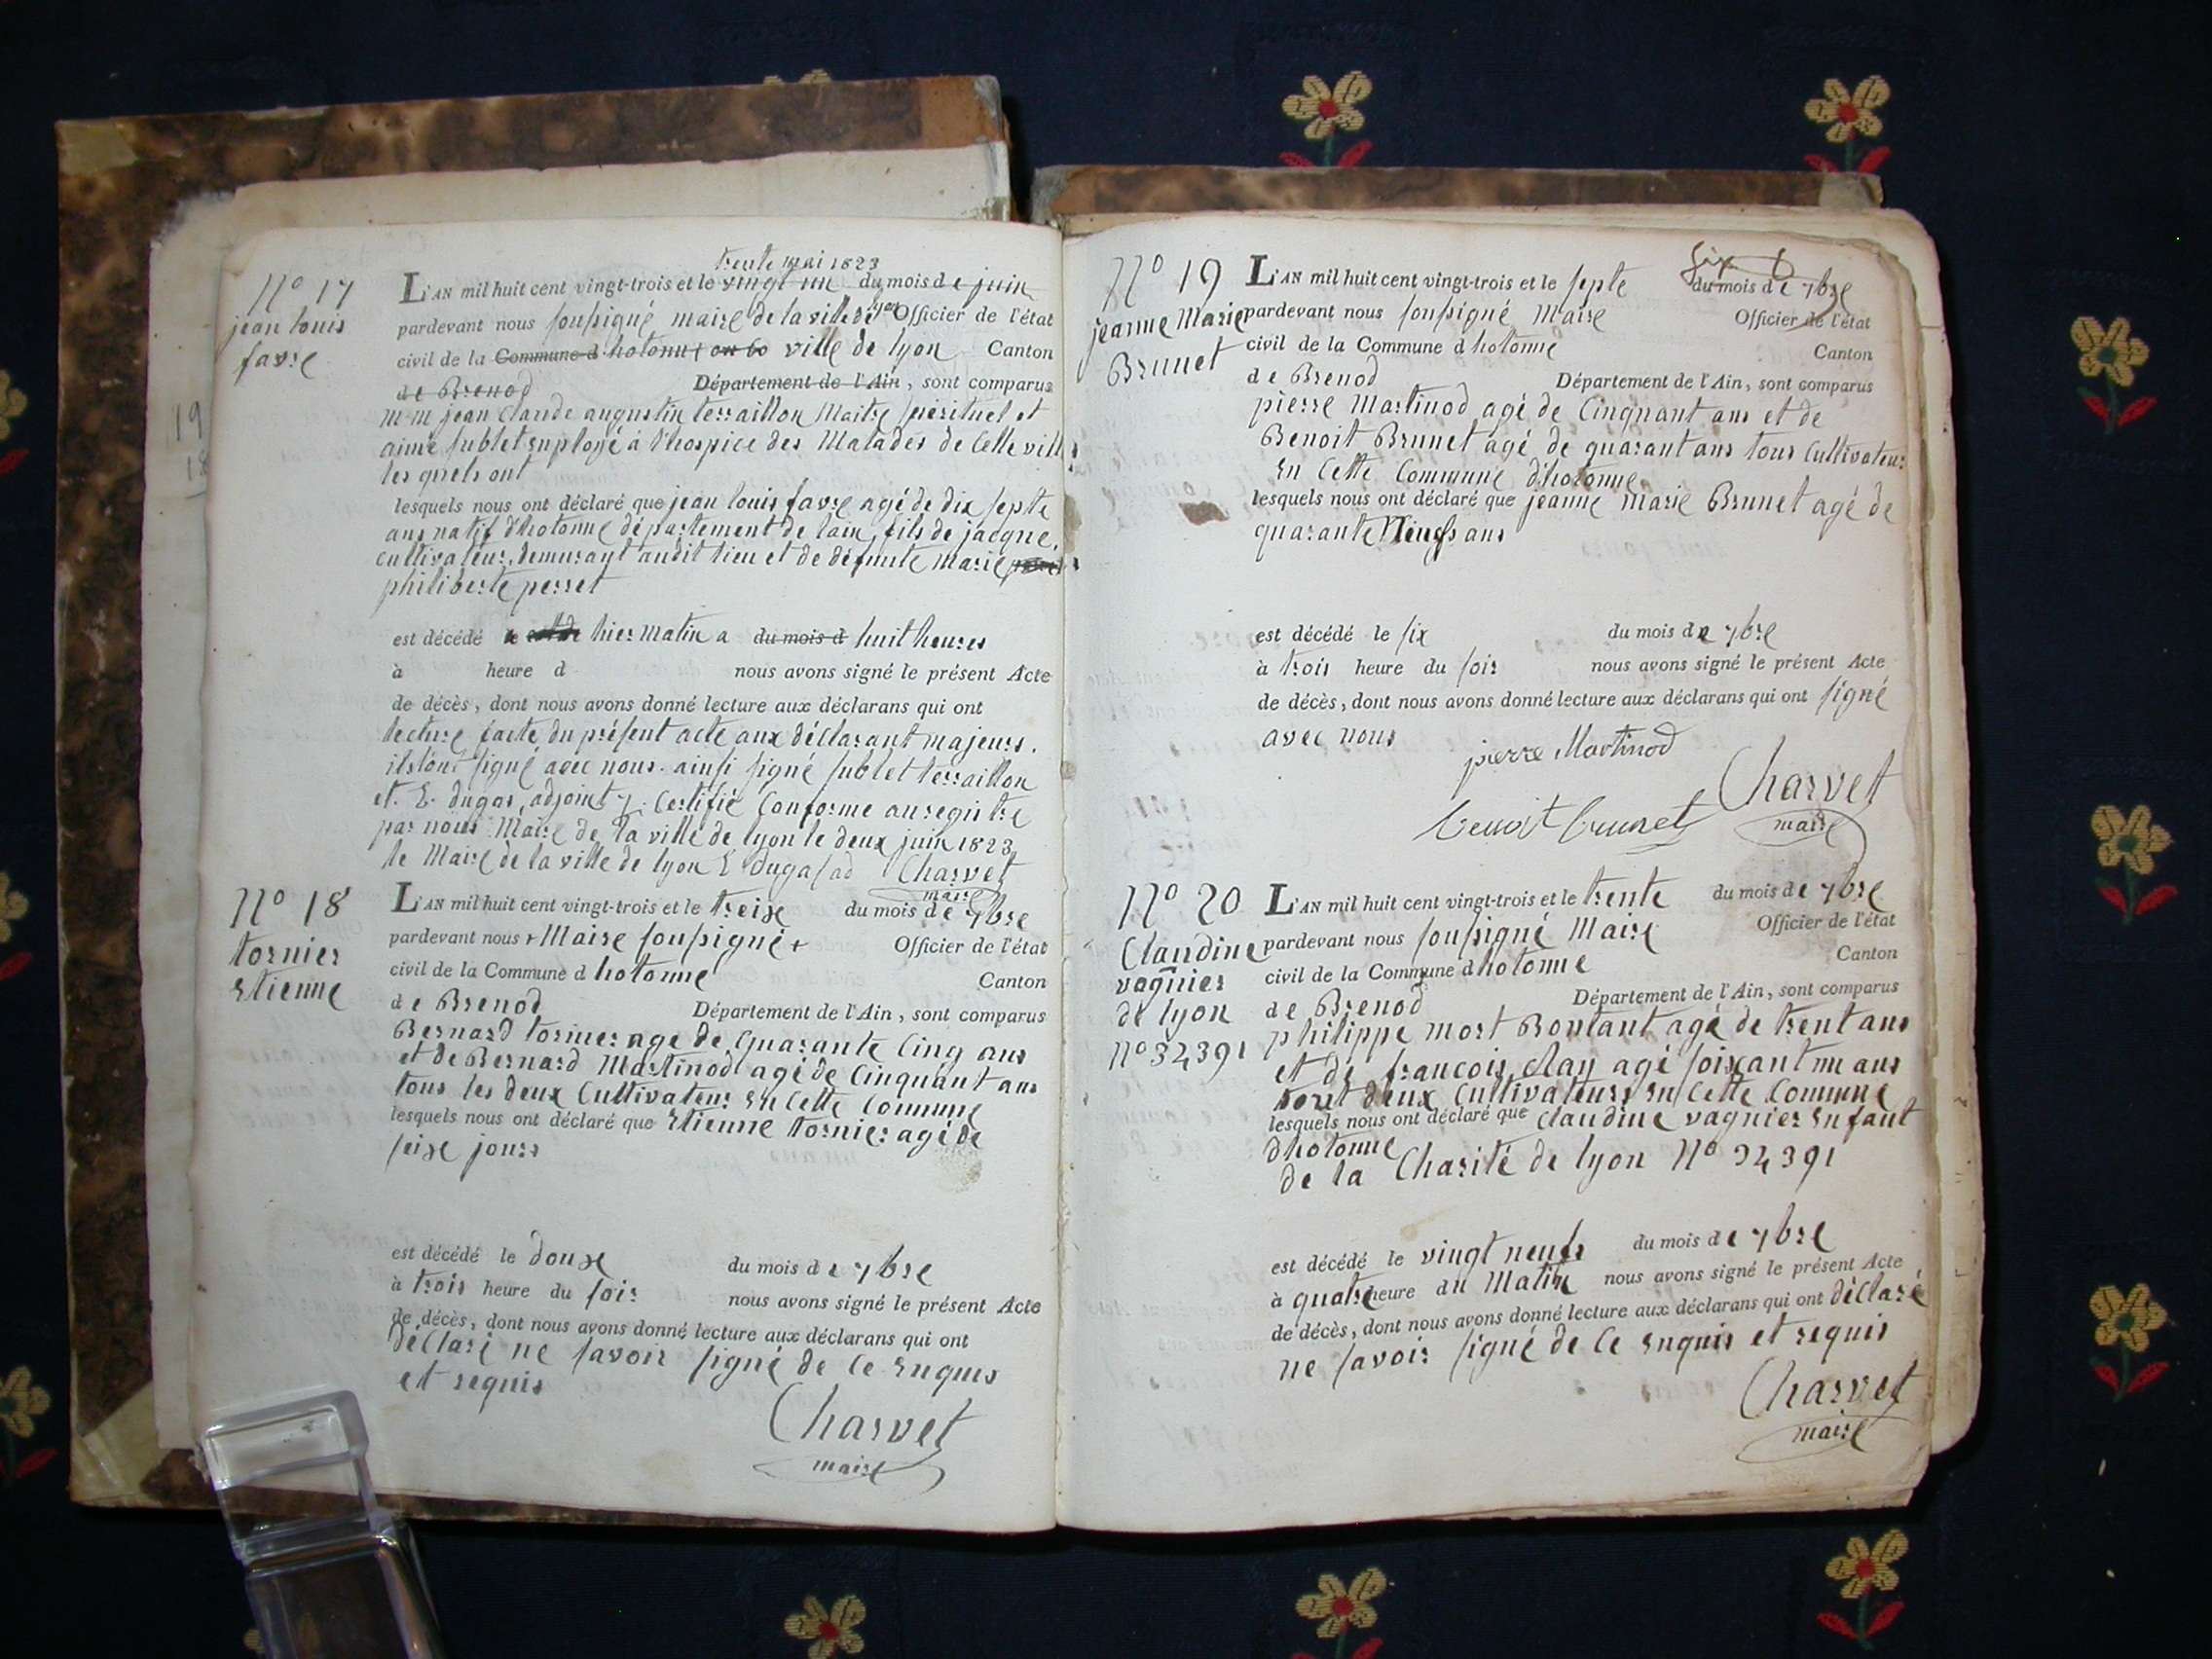 19
18
trente mai 1823
N° 17
L'AN mil huit cent vingt-trois et le vingt un du mois de juin
jean louis
favre
pardevant nous soussigné maire de la ville de lyon Officier de l'état
civil de la Commune d hotonne ville de lyon Canton
de Brenod Département de l'Ain, sont comparus
m-m jean claude augustin terraillon Maitre spirituel et
aimé sublet employé à l'hospice des Malades de Cette ville
les quels ont
lesquels nous ont déclaré que jean louis favre agé de dix septe
ans natif d'hotonne département de lain, fils de jacque,
cultivateur, demurant audit lieu et de défunte Marie
philiberte perret
est décédé hier Matin a du mois d huit heures
à heure d nous avons signé le présent Acte
de décès, dont nous avons donné lecture aux déclarans qui ont
lecture faite du présent acte aux déclarant majeurs.
ils ont signé avec nous. ainsi signé sublet terraillon
et. E. dugas, adjoint. Certifié Conforme au registre
par nous Maire de la ville de lyon le deux juin 1823
le Maire de la ville de lyon E dugas ad Charvet
maire
N° 18
L'AN mil huit cent vingt-trois et le treise du mois de 7bre
tornier
etienne
pardevant nous + Maire soussigné + Officier de l'état
civil de la Commune d hotonne Canton
de Brenod Département de l'Ain, sont comparus
Bernard tornier age de quarante Cinq ans
et de Bernard Martinod agé de Cinquant ans
tous les deux Cultivateur en Cette Commune
lesquels nous ont déclaré que etienne tornier agé de
seise jours
est décédé le douse du mois de 7bre
à trois heure du soir nous avons signé le présent Acte
de décès, dont nous avons donné lecture aux déclarans qui ont
déclaré ne savoir signé de Ce enquis
et requis
Charvet
maire
six
N° 19
L'AN mil huit cent vingt-trois et le septe du mois de 7bre
jeanne Marie
Brunet
pardevant nous soussigné Maire Officier de l'état
civil de la Commune d hotonne Canton
de Brenod Département de l'Ain, sont comparus
pierre Martinod agé de Cinquant ans et de
Benoit Brunet agé de quarant ans tous Cultivateur
en Cette Commune d'hotonne
lesquels nous ont déclaré que jeanne Marie Brunet agé de
quarante Neufs ans
est décédé le six du mois de 7bre
à trois heure du soir nous avons signé le présent Acte
de décès, dont nous avons donné lecture aux déclarans qui ont signé
avec nous
pierre Martinod
Charvet
maire
benoit brunet
N° 20
L'AN mil huit cent vingt-trois et le trente du mois de 7bre
Claudine
vagnier
de lyon
n° 34391
pardevant nous soussigné Maire Officier de l'état
civil de la Commune d hotonne Canton
de Brenod Département de l'Ain, sont comparus
philippe mort Boutant agé de trent ans
et de francois clay agé soixant un ans
tout deux Cultivateurs en Cette Commune
lesquels nous ont déclaré que Claudine vagnier enfant
dhotonne
de la Charité de lyon N° 34391
est décédé le vingt neufs du mois de 7bre
à quatre heure du Matin nous avons signé le présent Acte
de décès, dont nous avons donné lecture aux déclarans qui ont déclaré
ne savoir signé de Ce enquis et requis
Charvet
maire